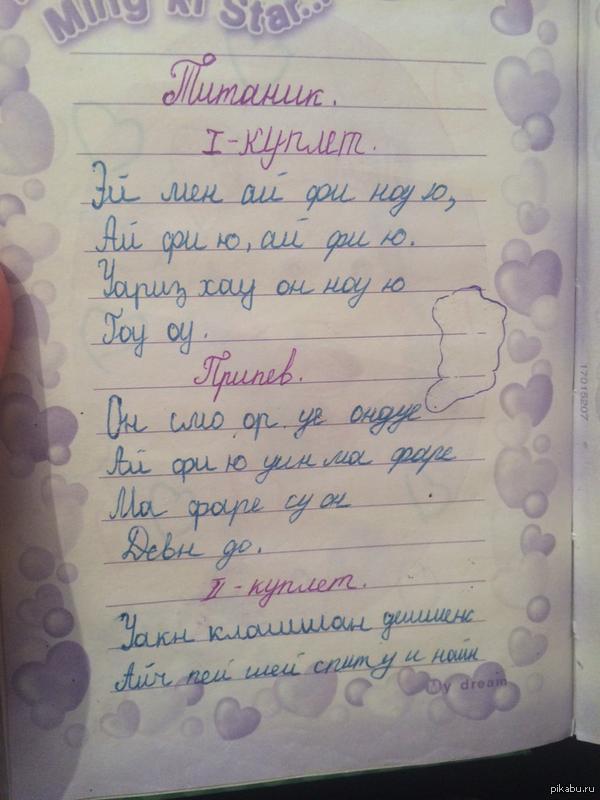 Ming ki Star...
Титаник.
I-куплет.
Эй мен ай фи ноу ю,
Ай фи ю, ай фи ю.
Уариз хау он ноу ю
Гоу оу.
Припев.
Он смо ор уе ондуе
Ай фи ю уин ма фаре
Ма фаре су он
Девн до.
II-куплет.
Уакн клашшан дешшенс
Айч пей шей спиту и найн
My dream
17015207
pikabu.ru